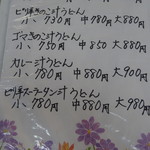 ピリ辛きのこ汁うどん
小、730円 中780円 大880円
ゴマきのこ汁うどん
小、750円 中850 大880円
カレー汁うどん
小、780円 中880円 大900円
ピリ辛スーラータン汁うどん
小、780円 中880円 大980円